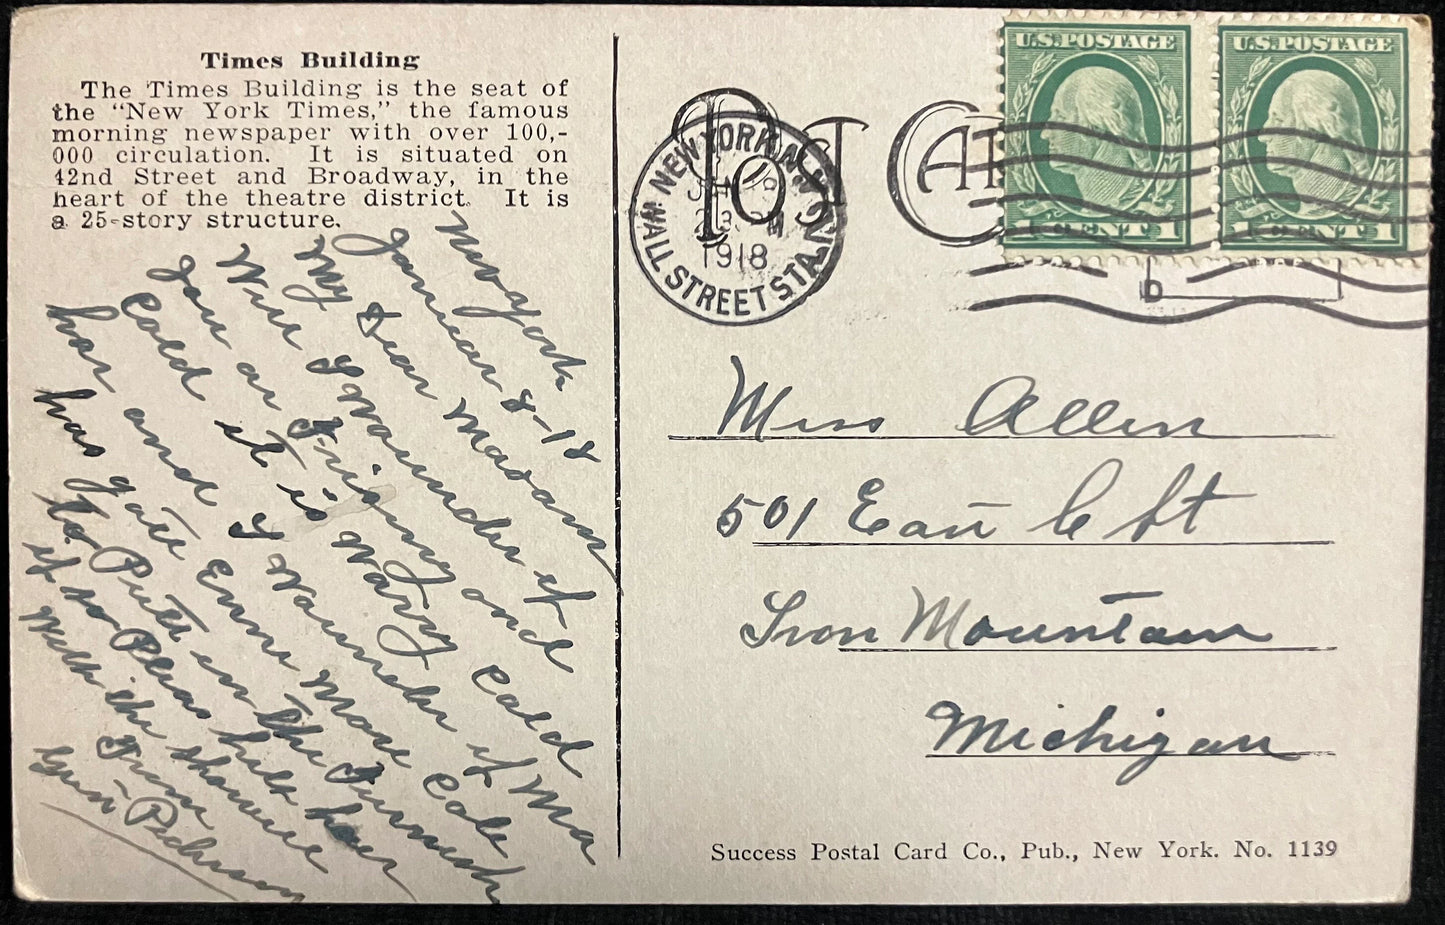 Times Building
The Times Building is the seat of
the "New York Times," the famous
morning newspaper with over 100,-
000 circulation. It is situated on
42nd Street and Broadway, in the
heart of the theatre district. It is
a 25-story structure.
January 8-18
My Dear Madam
Will I Wounder if
You ar Frising and
Cold it is Warry Cold
har and I Wounder if Ma
has gate Enne More Cole
to Putt in the Furnesh
if so Pleas helt har
With the showel
From
Pederson
POST CARD
NEW YORK, N.Y.
WALL STREET STA.
JAN 8
1918
U.S. POSTAGE
1 CENT 1
U.S. POSTAGE
1 CENT 1
Miss Allen
501 East C St
Iron Mountain
Michigan
Success Postal Card Co., Pub., New York. No. 1139